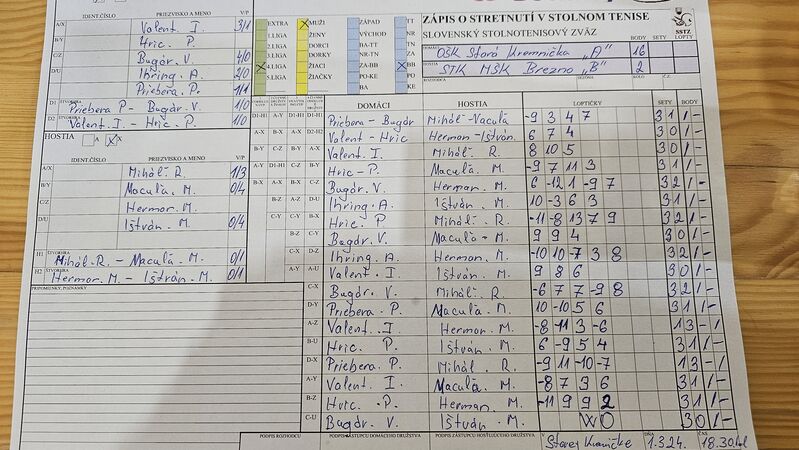 ZÁPIS O STRETNUTÍ V STOLNOM TENISE
SLOVENSKÝ STOLNOTENISOVÝ ZVÄZ
SSTZ
BODY SETY LOPTY
OŠK Stará Kremnička "A" 16
HOSTIA STK MŠK Brezno "B" 2
ROZHODCA SEZÓNA KOLO Č.Z.
EXTRA MUŽI ZÁPAD TT
1.LIGA ŽENY VÝCHOD NR
DORCI BA-TT TN
DORKY TT-NR ZA
4.LIGA ŽIACI ZA-BB BB
5.LIGA ŽIAČKY PO-KE PO
BA KE
IDENT.ČÍSLO PRIEZVISKO A MENO V/P
A/X Valent I. 3/1
B/Y Hric P.
C/Z Bugár V. 4/0
D/U Ihring A. 2/0
Priebera P. 1/1
D1 ŠTVORHRA Priebera P - Bugár V. 1/0
D2 Valent. I - Hric P. 1/0
HOSTIA A X
IDENT.ČÍSLO PRIEZVISKO A MENO V/P
A/X Mihál R. 1/3
B/Y Maculá M. 0/4
C/Z Herman. M.
D/U Ištván. M. 0/4
H1 ŠTVORHRA Mihál R. - Maculá M. 0/1
H2 ŠTVORHRA Herman M. - Ištván. M. 0/1
PRIPOMIENKY, POZNÁMKY
DOMÁCI HOSTIA LOPTIČKY SETY BODY
Priebera - Bugár Mihál - Maculá -9 3 4 7 3 1 1 -
Valent - Hric Herman - Ištván 6 7 4 3 0 1 -
Valent I. Mihál R. 8 10 5 3 0 1 -
Hric - P. Maculá M. -9 7 11 3 3 1 1 -
Bugár. V. Herman. M. 6 -12 1 -9 7 3 2 1 -
Ihring. A. Ištván. M. 10 -3 6 3 3 1 1 -
Hric P. Mihál. R. -11 -8 13 7 9 3 2 1 -
Bugár V. Maculá - M. 9 9 4 3 0 1 -
Ihring A. Herman. M. -10 10 -7 3 8 3 2 1 -
Valent I. Ištván M. 9 8 6 3 0 1 -
C-X Bugár. V. Mihál. R. -6 7 7 -9 8 3 2 1 -
D-Y Priebera. P. Maculá M. 10 -10 5 6 3 1 1 -
A-Z Valent. I. Herman. M. -8 11 3 -6 1 3 - 1
B-U Hric. P. Ištván M. 6 -9 5 4 3 1 1 -
D-X Priebera. P. Mihál. R. -9 11 -10 -7 1 3 - 1
A-Y Valent. I. Maculá M. -8 7 9 6 3 1 1 -
B-Z Hric. P. Herman. M. -11 9 9 2 3 1 1 -
C-U Bugár. V. Ištván - M. WO 3 0 1 -
PODPIS ROZHODCU PODPIS ZÁSTUPCU DOMÁCEHO DRUŽSTVA PODPIS ZÁSTUPCU HOSŤUJÚCEHO DRUŽSTVA V DŇA 1.3.24. ČAS 18.30